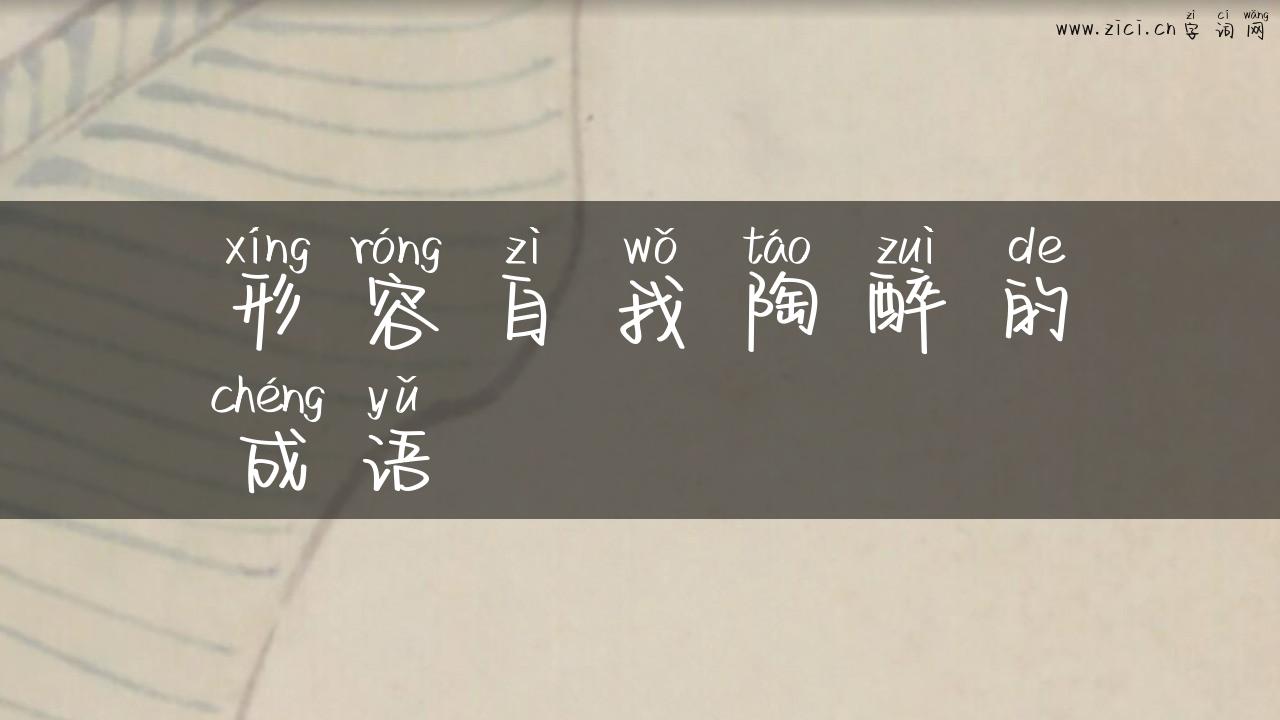 zì cí wǎng
www.zici.cn 字词网
xíng róng zì wǒ táo zuì de
形容自我陶醉的
chéng yǔ
成语